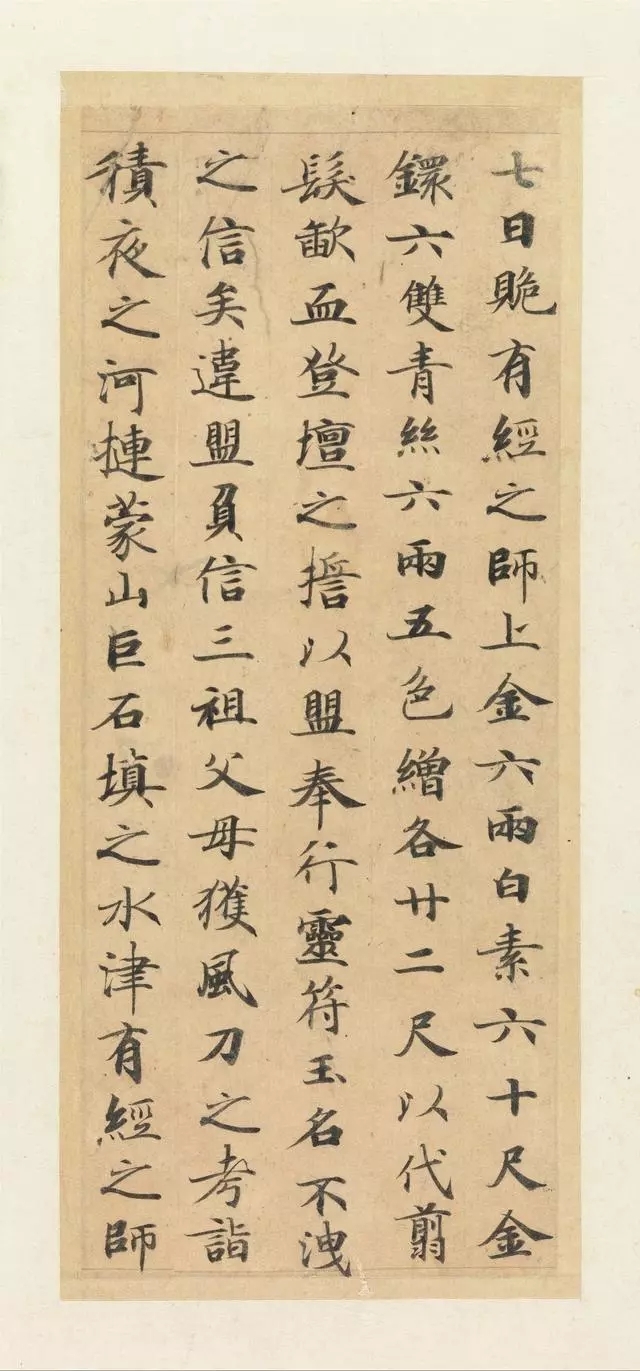 七日賒有經之師上金六兩白素六十尺金
鐶六雙青絲六兩五色繒各廿二尺以代翦
髮歃血登壇之誓以盟奉行靈符玉名不洩
之信矣違盟負信三祖父母獲風刀之考詣
積夜之河摙蒙山巨石填之水津有經之師